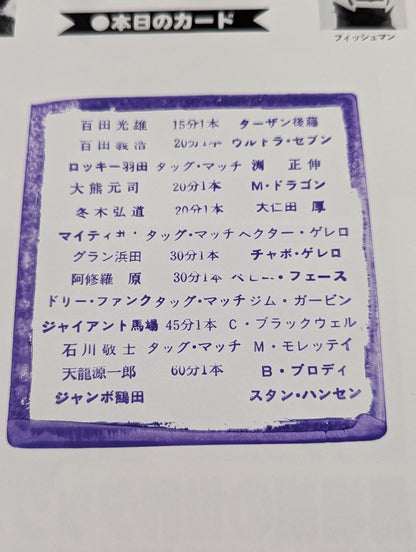 ●本日のカード
フィッシュマン
百田光雄 15分1本 ターザン後藤
百田義浩 20分1本 ウルトラ・セブン
ロッキー羽田 タッグ・マッチ 渕 正伸
大熊元司 20分1本 M・ドラゴン
冬木弘道 20分1本 大仁田 厚
マイティ タッグ・マッチ ヘクター・ゲレロ
グラン浜田 30分1本 チャボ・ゲレロ
阿修羅 原 30分1本 フェース
ドリー・ファンク タッグ・マッチ ジム・ガービン
ジャイアント馬場 45分1本 C・ブラックウェル
石川敬士 タッグ・マッチ M・モレッティ
天龍源一郎 60分1本 B・ブロディ
ジャンボ鶴田 スタン・ハンセン